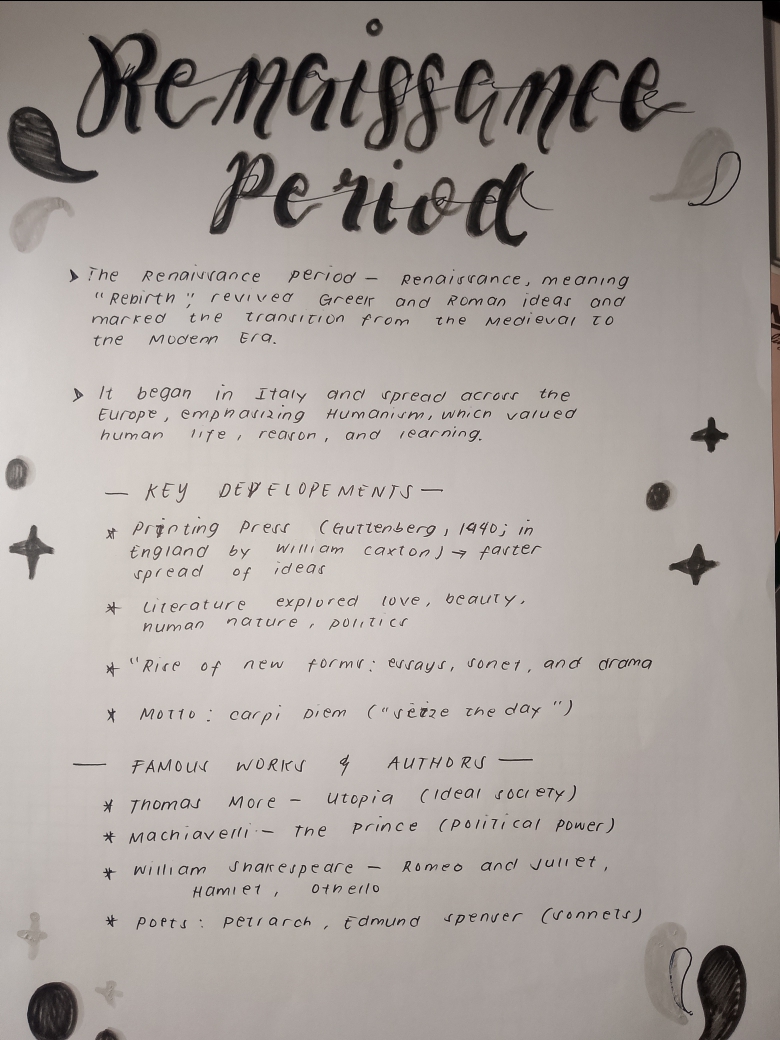 Renaissance
Period
The Renaissance period – Renaissance, meaning
"Rebirth", revived Greek and Roman ideas and
marked the transition from the Medieval to
the Modern Era.
It began in Italy and spread across the
Europe, emphasizing Humanism, which valued
human life, reason, and learning.
— KEY DEVELOPEMENTS —
* Printing Press (Guttenberg, 1440; in
England by William Caxton) → faster
spread of ideas
* Literature explored love, beauty,
human nature, politics
* "Rise of new forms: essays, sonet, and drama
* Motto: carpi Diem ("seize the day")
— FAMOUS WORKS & AUTHORS —
* Thomas More – Utopia (Ideal society)
* Machiavelli – The Prince (political power)
* William Shakespeare – Romeo and Juliet,
Hamlet, Othello
* Poets: Petrarch, Edmund Spenser (sonnets)